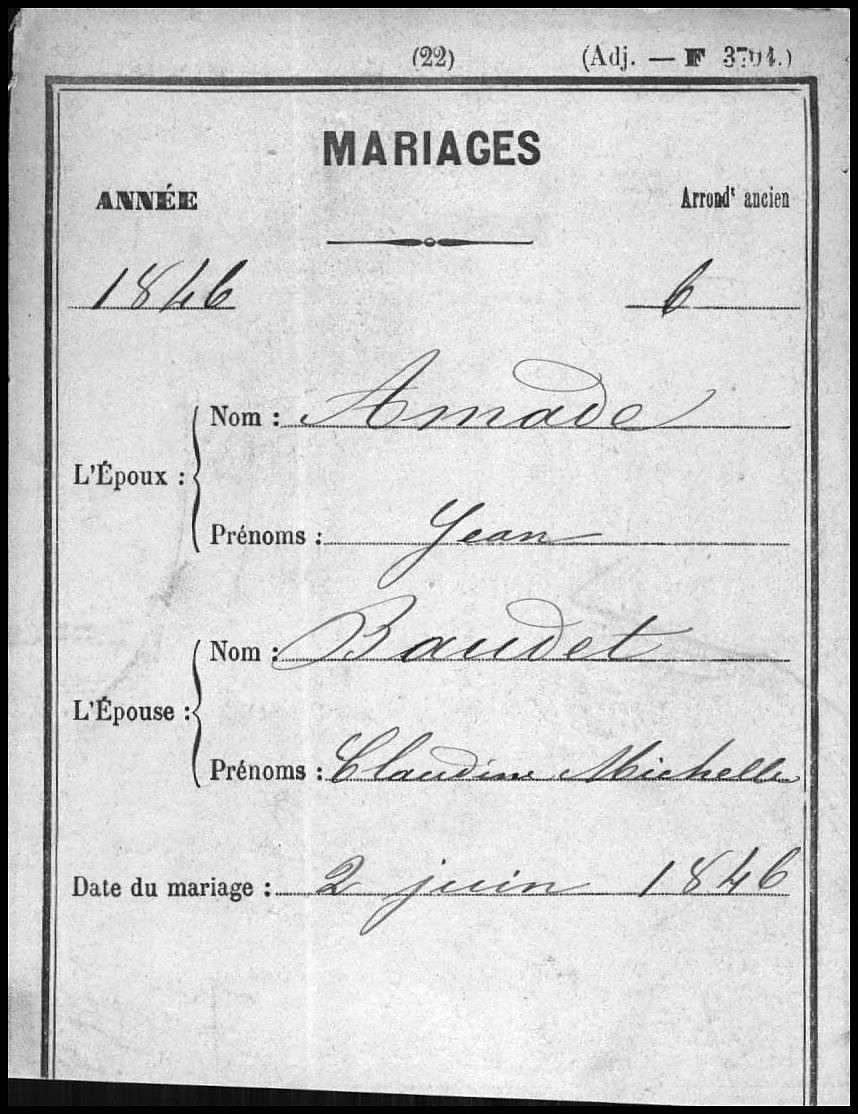 (22) (Adj. — F 3704.)
MARIAGES
ANNÉE Arrondt ancien
1846 6
Nom : Amade
L'Époux :
Prénoms : Jean
Nom : Baudet
L'Épouse :
Prénoms : Claudine Michelle
Date du mariage : 2 juin 1846